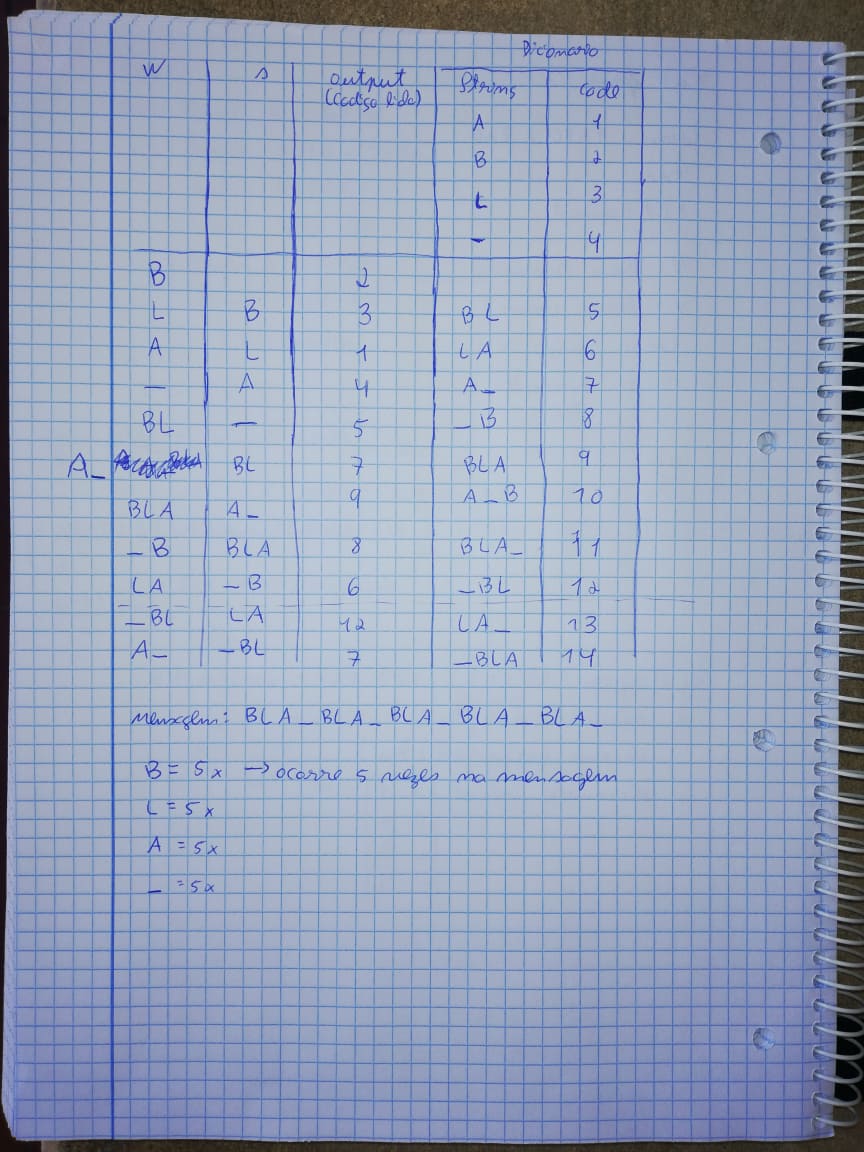 Dicionario
W s output Strings code
(codigo lido)
A 1
B 2
L 3
_ 4
B 2
L B 3 BL 5
A L 1 LA 6
_ A 4 A_ 7
BL _ 5 _B 8
A_ BL 7 BLA 9
BLA A_ 9 A_B 10
_B BLA 8 BLA_ 11
LA _B 6 _BL 12
_BL LA 12 LA_ 13
A_ _BL 7 _BLA 14
mensagem: BLA_BLA_BLA_BLA_BLA_
B = 5x → ocorre 5 vezes na mensagem
L = 5x
A = 5x
_ = 5x